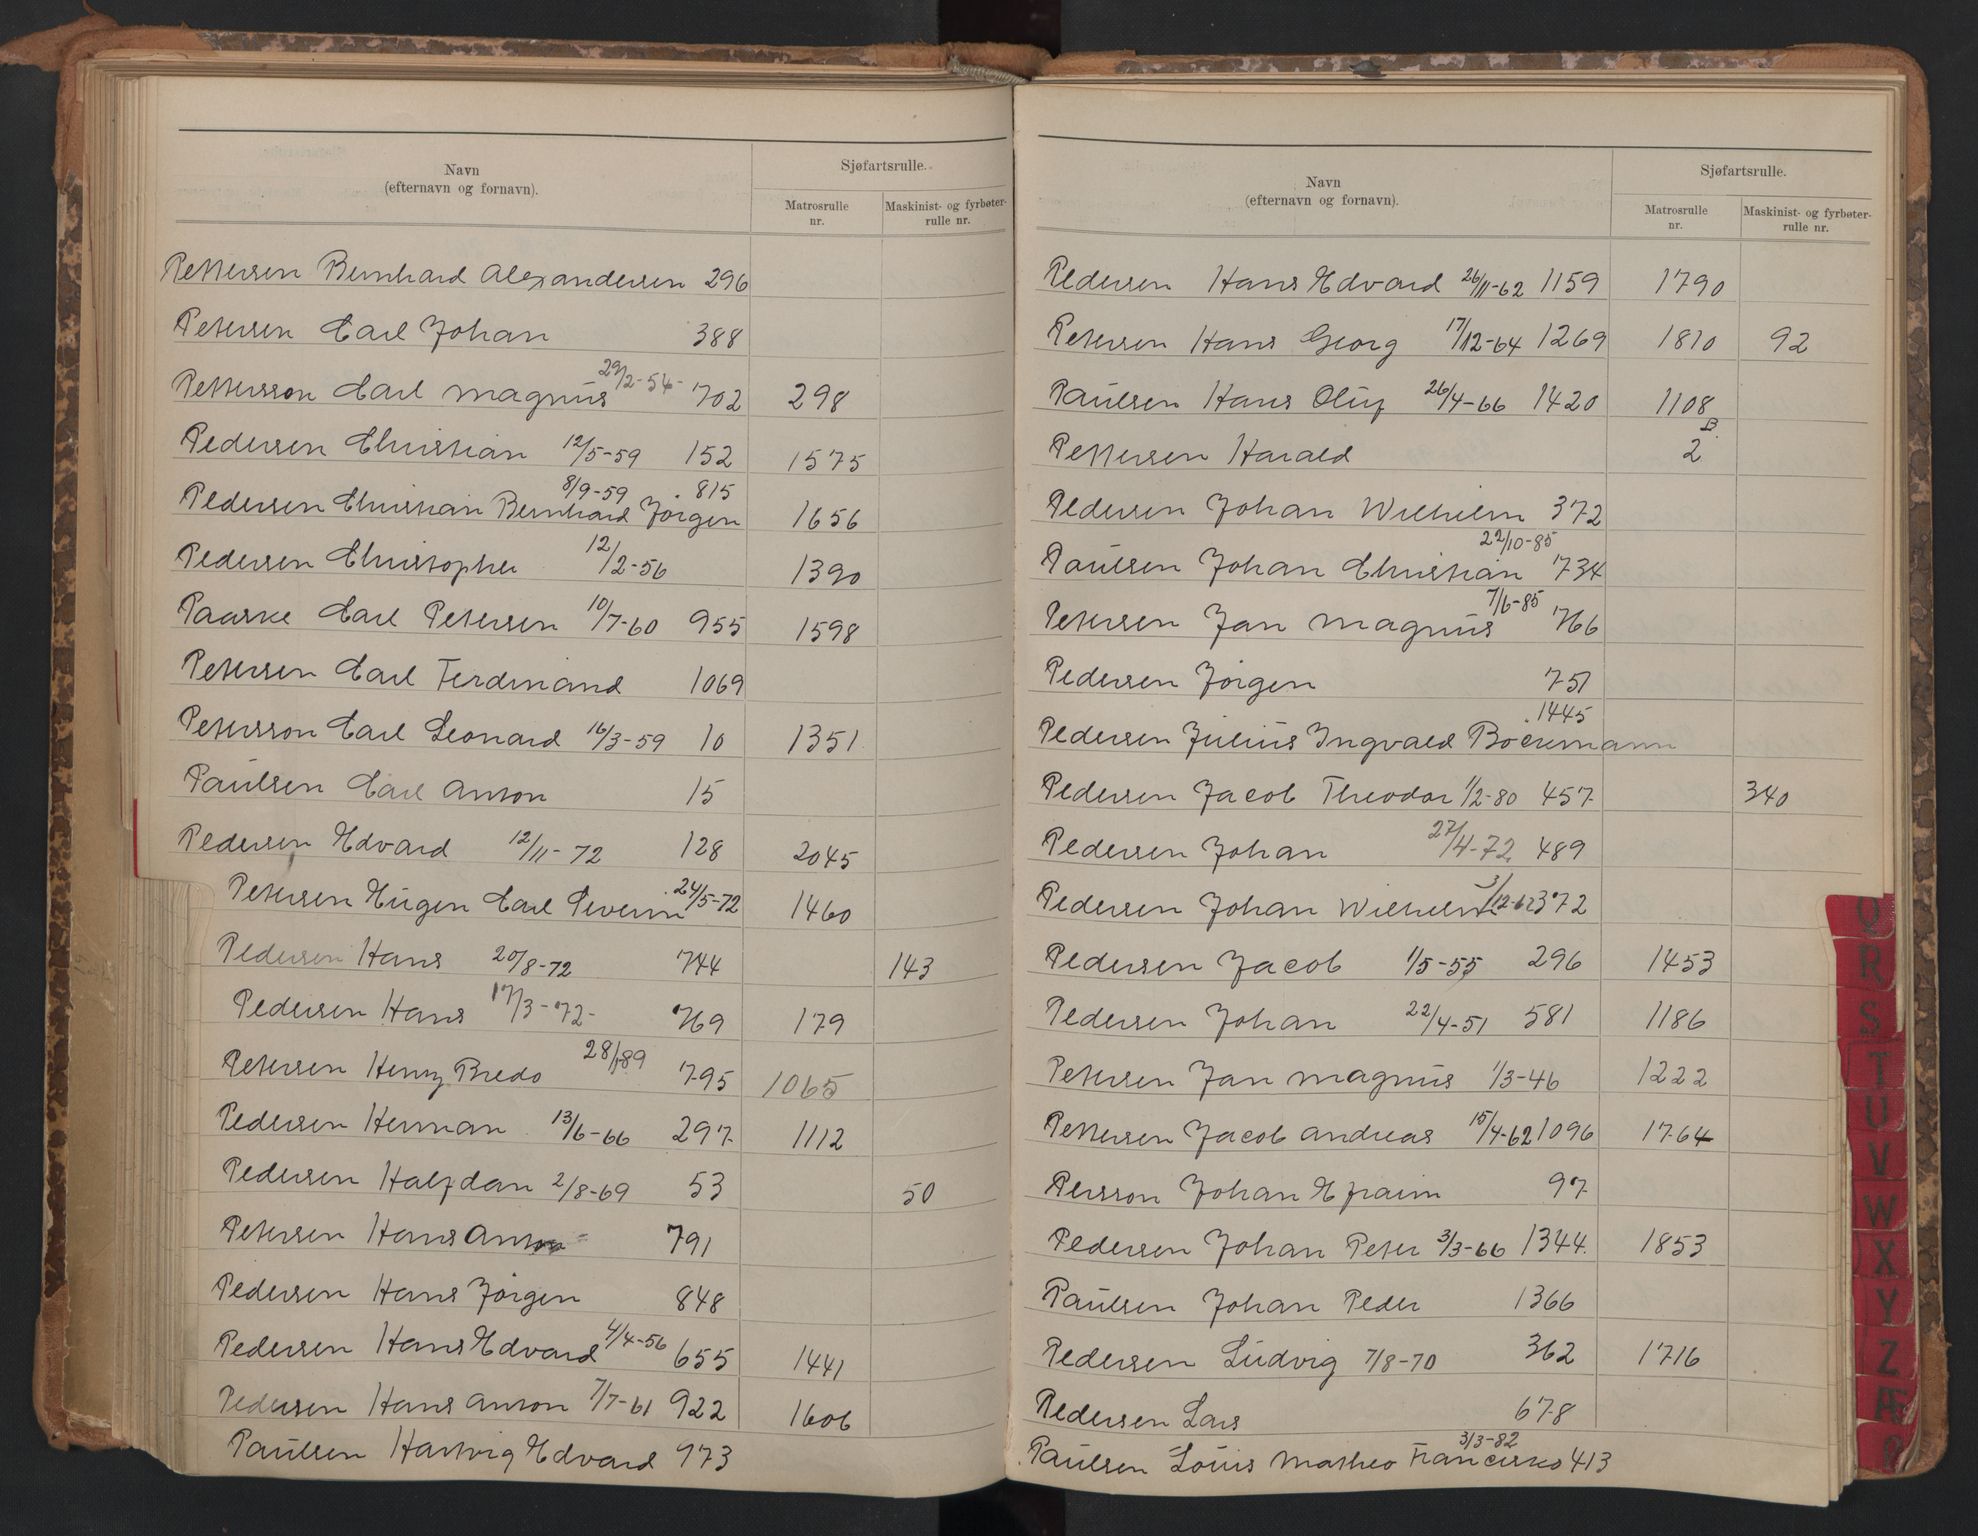 Navn
(efternavn og fornavn).
Sjøfartsrulle.
Matrosrulle
nr.
Maskinist- og fyrbøter-
rulle nr.
Pettersen Bernhard Alexandersen 296
Petersen Carl Johan 388
29/2-54-
Pettersson Carl Magnus 702 298
Pedersen Christian 12/5-59 152 1575
8/9-59 815
Pedersen Christian Bernhard Jörgen 1656
Pedersen Christopher 12/2-56 1390
Paaske Carl Petersen 10/7-60 955 1598
Petersen Carl Ferdinand 1069
Petersson Carl Leonard 16/3-59 10 1351
Paulsen Carl Anton 15
Pedersen Edvard 12/11-72 128 2045
Petersen Eugen Carl Severin 24/5-72 1460
Pedersen Hans 20/8-72 744 143
Pedersen Hans 17/3-72- 769 179
Petersen Henry Bredo 28/1 89 795 1065
Pedersen Herman 13/6-66 297 1112
Pedersen Halfdan 2/8-69 53 50
Petersen Hans Anton 791
Pedersen Hans Jörgen 848
Pedersen Hans Edvard 4/4-56 655 1441
Pedersen Hans Anton 7/7-61 922 1606
Paulsen Hartvig Edvard 973
Navn
(efternavn og fornavn).
Sjøfartsrulle.
Matrosrulle
nr.
Maskinist- og fyrbøter-
rulle nr.
Pedersen Hans Edvard 26/11-62 1159 1790
Petersen Hans Georg 17/12-64 1269 1810 92
Paulsen Hans Oluf 26/4-66 1420 1108
B.
Pettersen Harald 2
Pedersen Johan Wilhelm 372
22/10-85
Paulsen Johan Christian 734
7/6-85
Petersen Jan Magnus 766
Pedersen Jörgen 751
1445
Pedersen Julius Ingvald Bockmann
Pedersen Jacob Theodor 1/2-80 457 340
Pedersen Johan 27/4-72 489
Pedersen Johan Wilhelm 3/12-62 372
Pedersen Jacob 1/5-55 296 1453
Pedersen Johan 22/4-51 581 1186
Petersen Jan Magnus 1/3-46 1222
Pettersen Jacob Andreas 15/4-62 1096 1764
Persson Johan Efraim 97
Pedersen Johan Peter 3/3-66 1344 1853
Paulsen Johan Peder 1366
Pedersen Ludvig 7/8-70 362 1716
Pedersen Lars 678
3/3-82
Paulsen Louis Matheo Francisko 413
Q
R
S
T
U
V
W
X
Y
Z
Æ